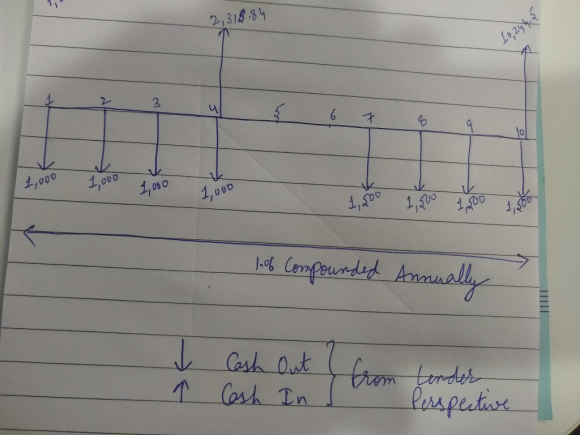 2,318.84
10,244.5
1 2 3 4 5 6 7 8 9 10
1,000 1,000 1,000 1,000 1,500 1,500 1,500 1,500
1.06 Compounded Annually
↓ Cash Out
↑ Cash In
From Lender
Perspective